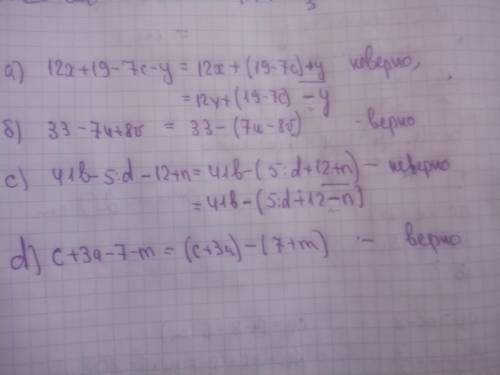 а) 12x+19-7c-y = 12x+(19-7c)+y неверно,
= 12y+(19-7c) - y
б) 33-7u+8v = 33-(7u-8v) - верно
c) 41b-5:d-12+n = 41b-(5:d+12+n) - неверно
= 41b-(5:d+12-n)
d) c+3a-7-m = (c+3a)-(7+m) - верно